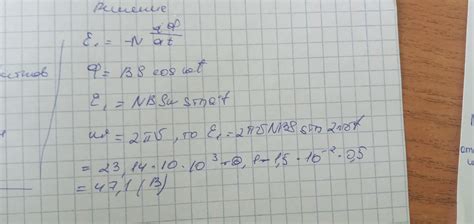 Решение
ℰᵢ = -N dФ/dt
Ф = BS cos ωt
ℰᵢ = NBSω sin ωt
ω = 2πν, то ℰᵢ = 2πνNBS sin 2πνt
= 23,14 · 10 · 10³ · 0,1 · 1,5 · 10⁻² · 0,5
= 47,1 (В)